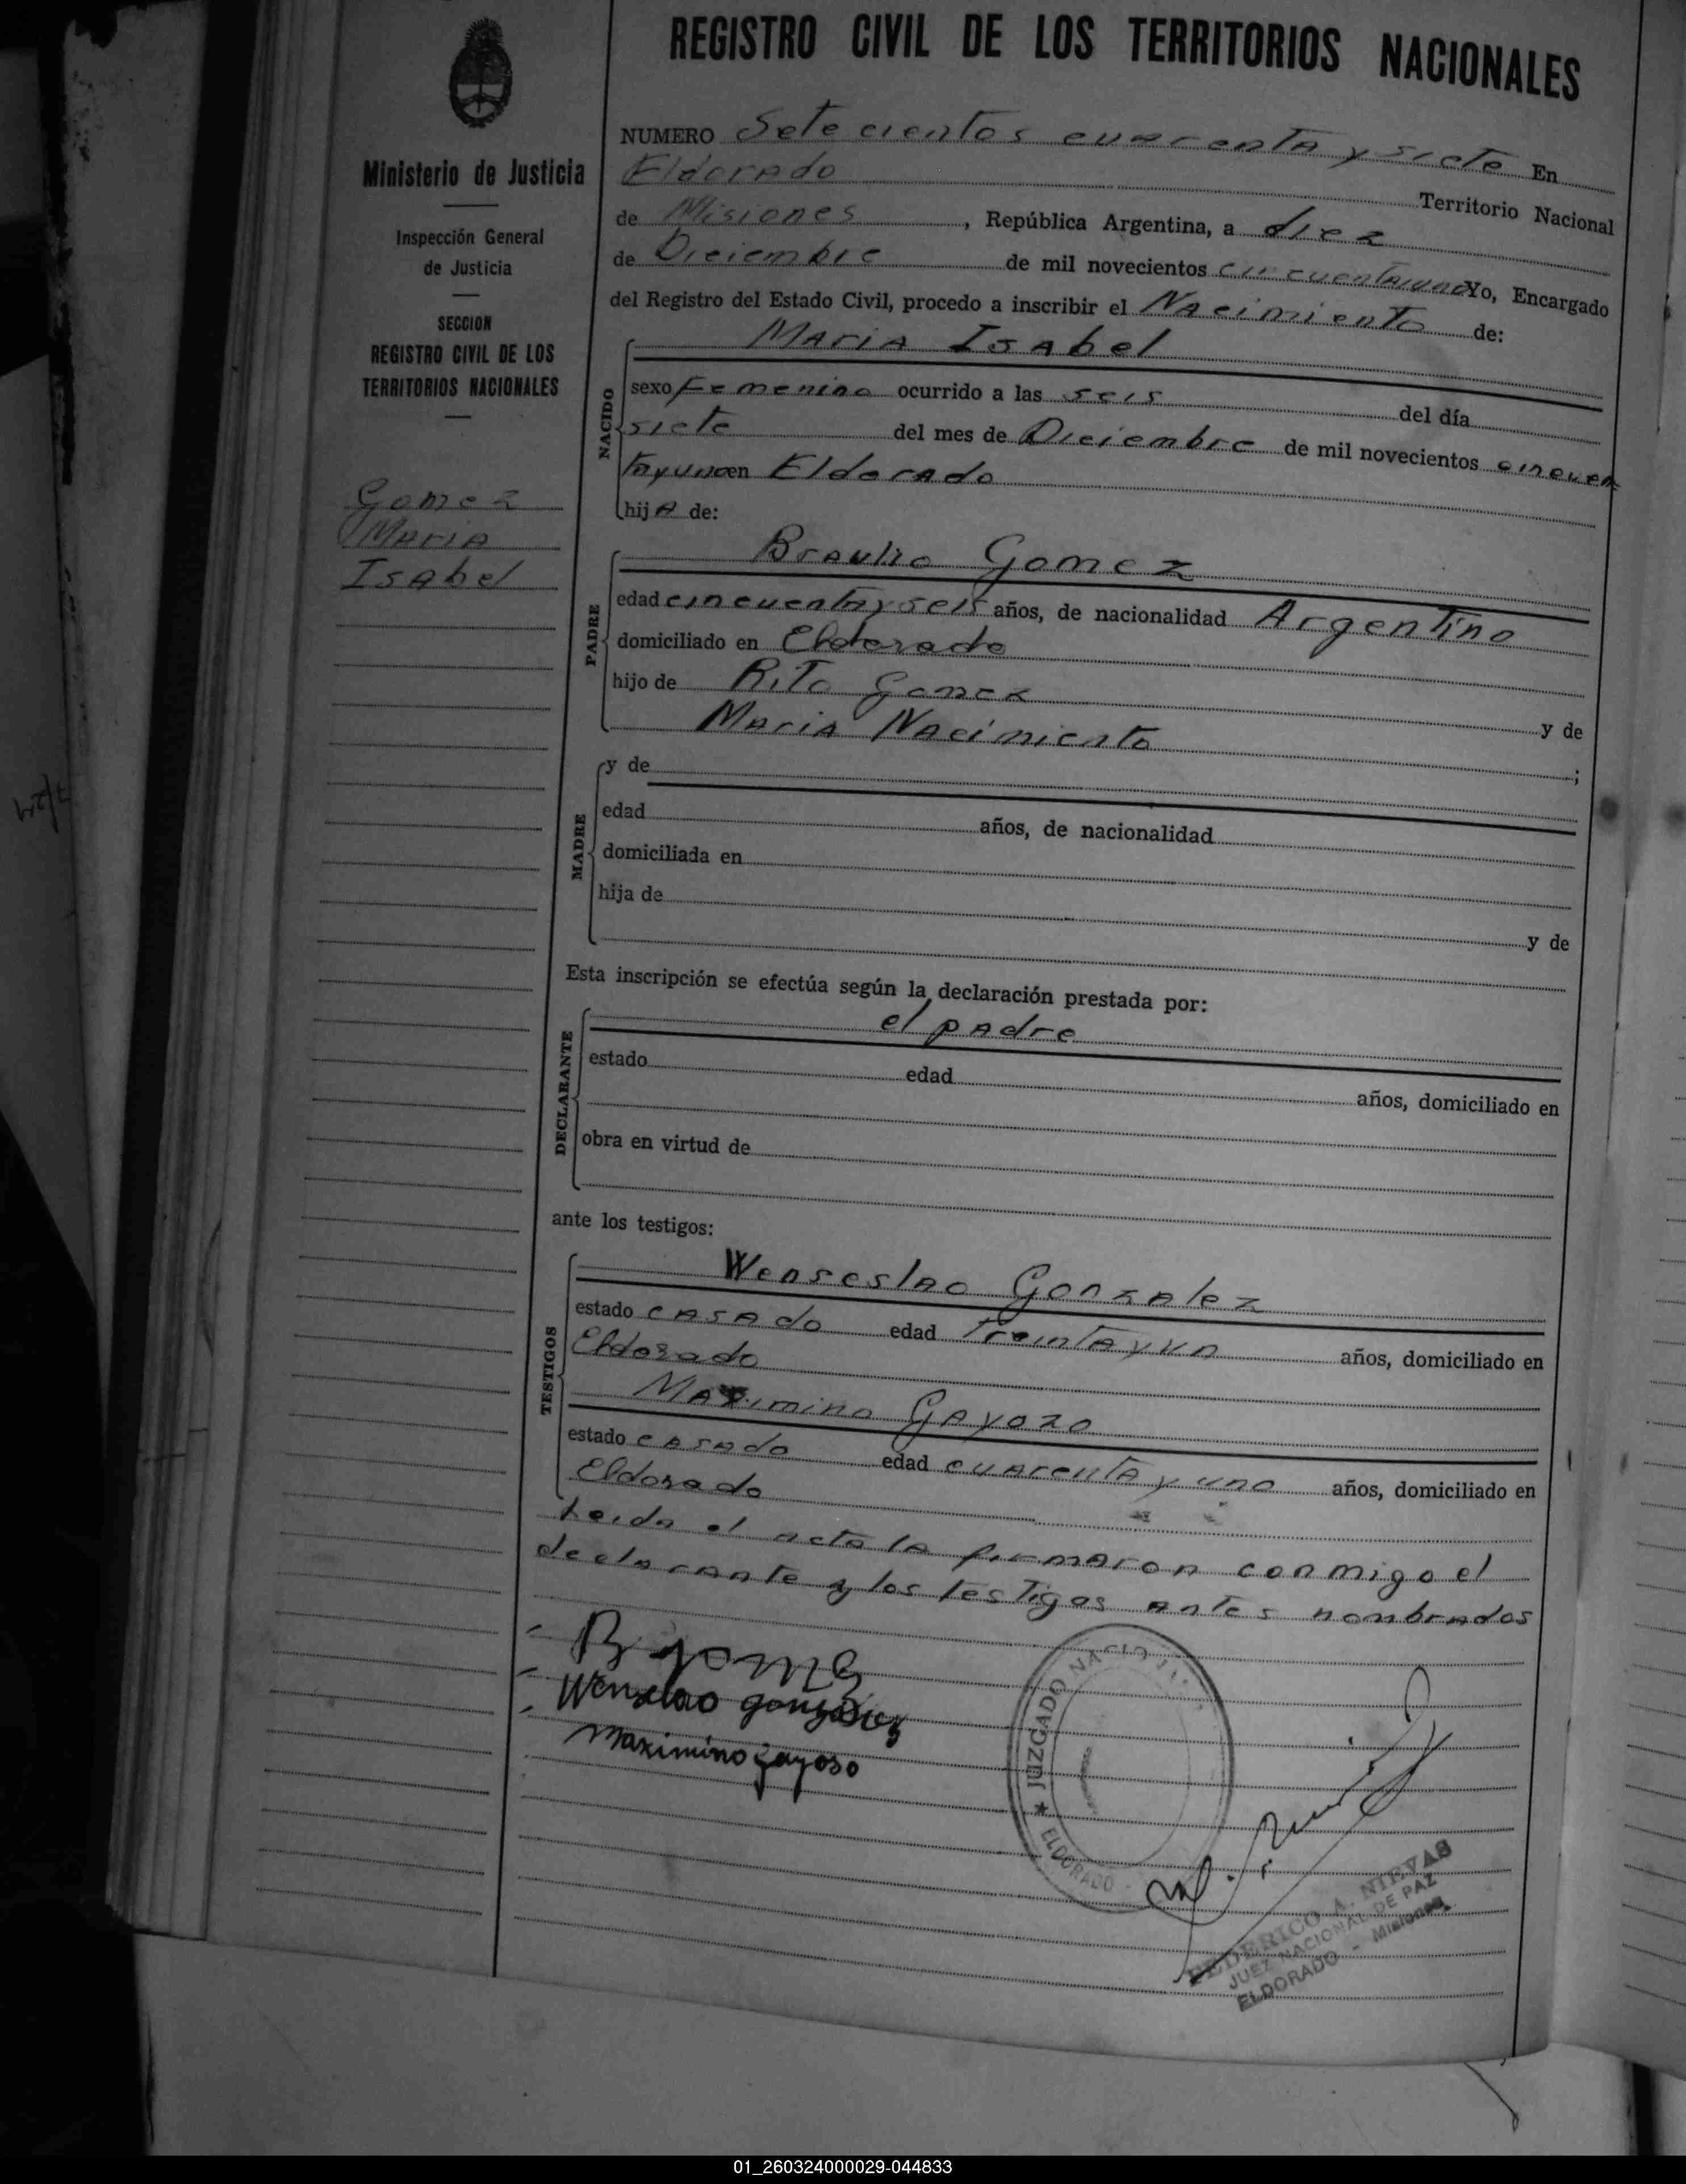 REGISTRO CIVIL DE LOS TERRITORIOS NACIONALES
Ministerio de Justicia
Inspección General
de Justicia
SECCION
REGISTRO CIVIL DE LOS
TERRITORIOS NACIONALES
Gomez
Maria
Isabel
NUMERO Sete cientos cuarenta y siete En
Eldorado Territorio Nacional
de Misiones, República Argentina, a diez
de Diciembre de mil novecientos cincuentaiuno Yo, Encargado
del Registro del Estado Civil, procedo a inscribir el Nacimiento de:
NACIDO
Maria Isabel
sexo Femenino ocurrido a las seis del día
siete del mes de Diciembre de mil novecientos cincuen
tayuno en Eldorado
hija de:
PADRE
Braulio Gomez
edad cincuentayseis años, de nacionalidad Argentino
domiciliado en Eldorado
hijo de Rito Gomez y de
Maria Nacimiento ;
MADRE
y de
edad años, de nacionalidad
domiciliada en
hija de
y de
Esta inscripción se efectúa según la declaración prestada por:
DECLARANTE
el padre
estado edad años, domiciliado en
obra en virtud de
ante los testigos:
TESTIGOS
Wenseslao Gonzalez
estado casado edad treinta y un años, domiciliado en
Eldorado
Maximino Gayozo
estado casado edad cuarenta y uno años, domiciliado en
Eldorado
Leida el acta la firmaron conmigo el
declarante y los testigos antes nombrados
B gomez
Wenselao gonzalez
Maximino gayoso
JUZGADO NACIO
★ ELDORADO -
FEDERICO A. NIEVAS
JUEZ NACIONAL DE PAZ
ELDORADO - Misiones
01_260324000029-044833